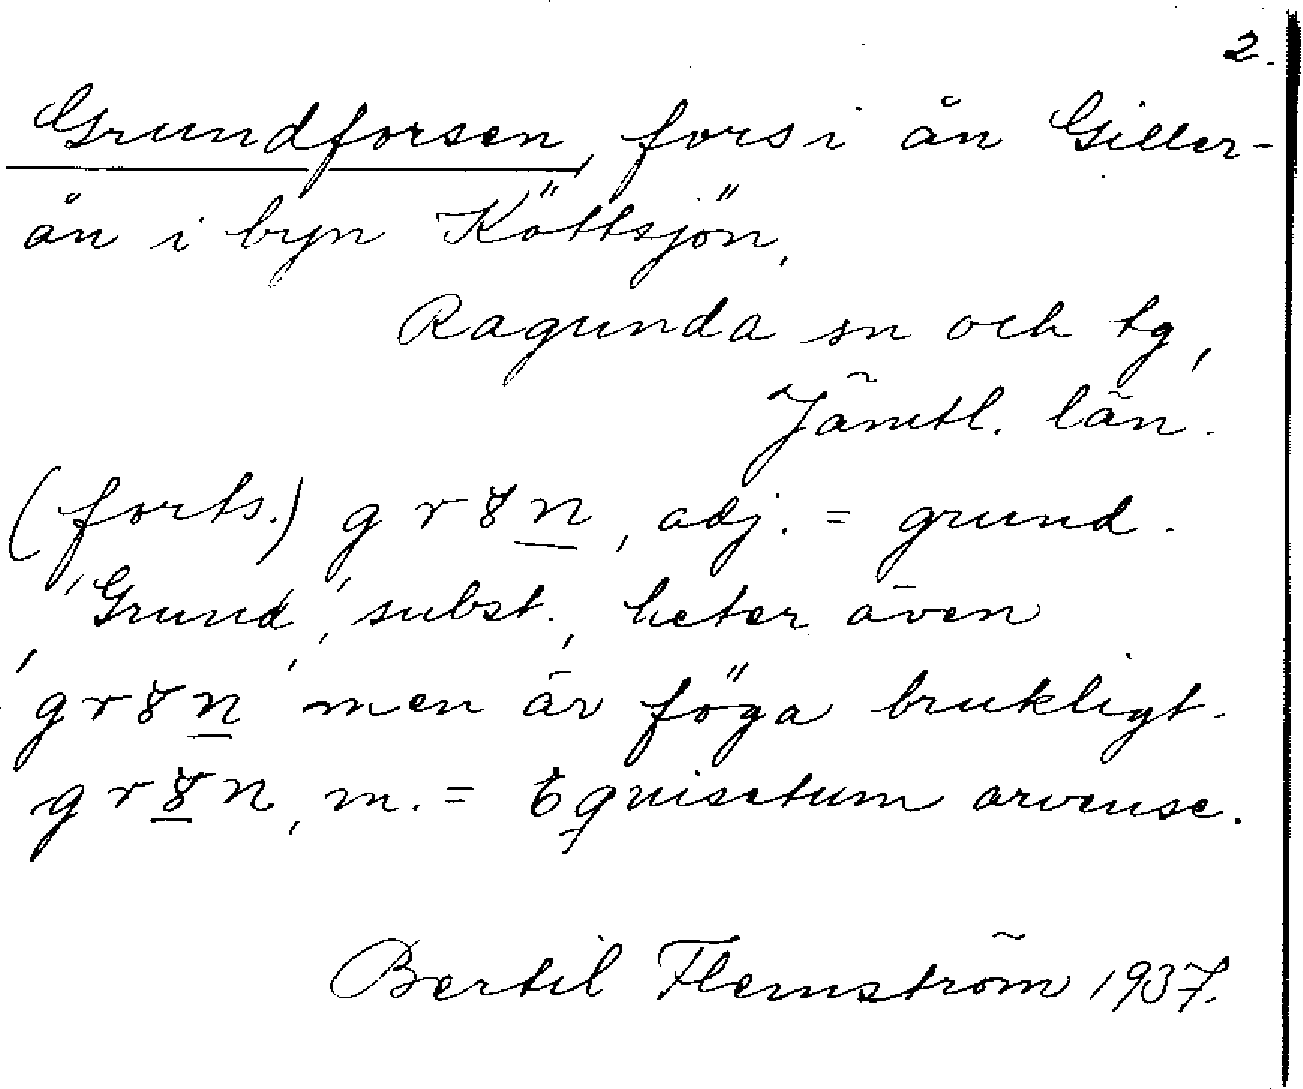 2.
Grundforsen, fors i ån Giller-
ån i byn Köttsjön,
Ragunda sn och tg,
Jämtl. län.
(forts.) gr8n, adj. = grund.
'Grund', subst., heter även
'gr8n' men är föga brukligt.
gr8n, m. = Equisetum arvense.
Bertil Flemström 1937.